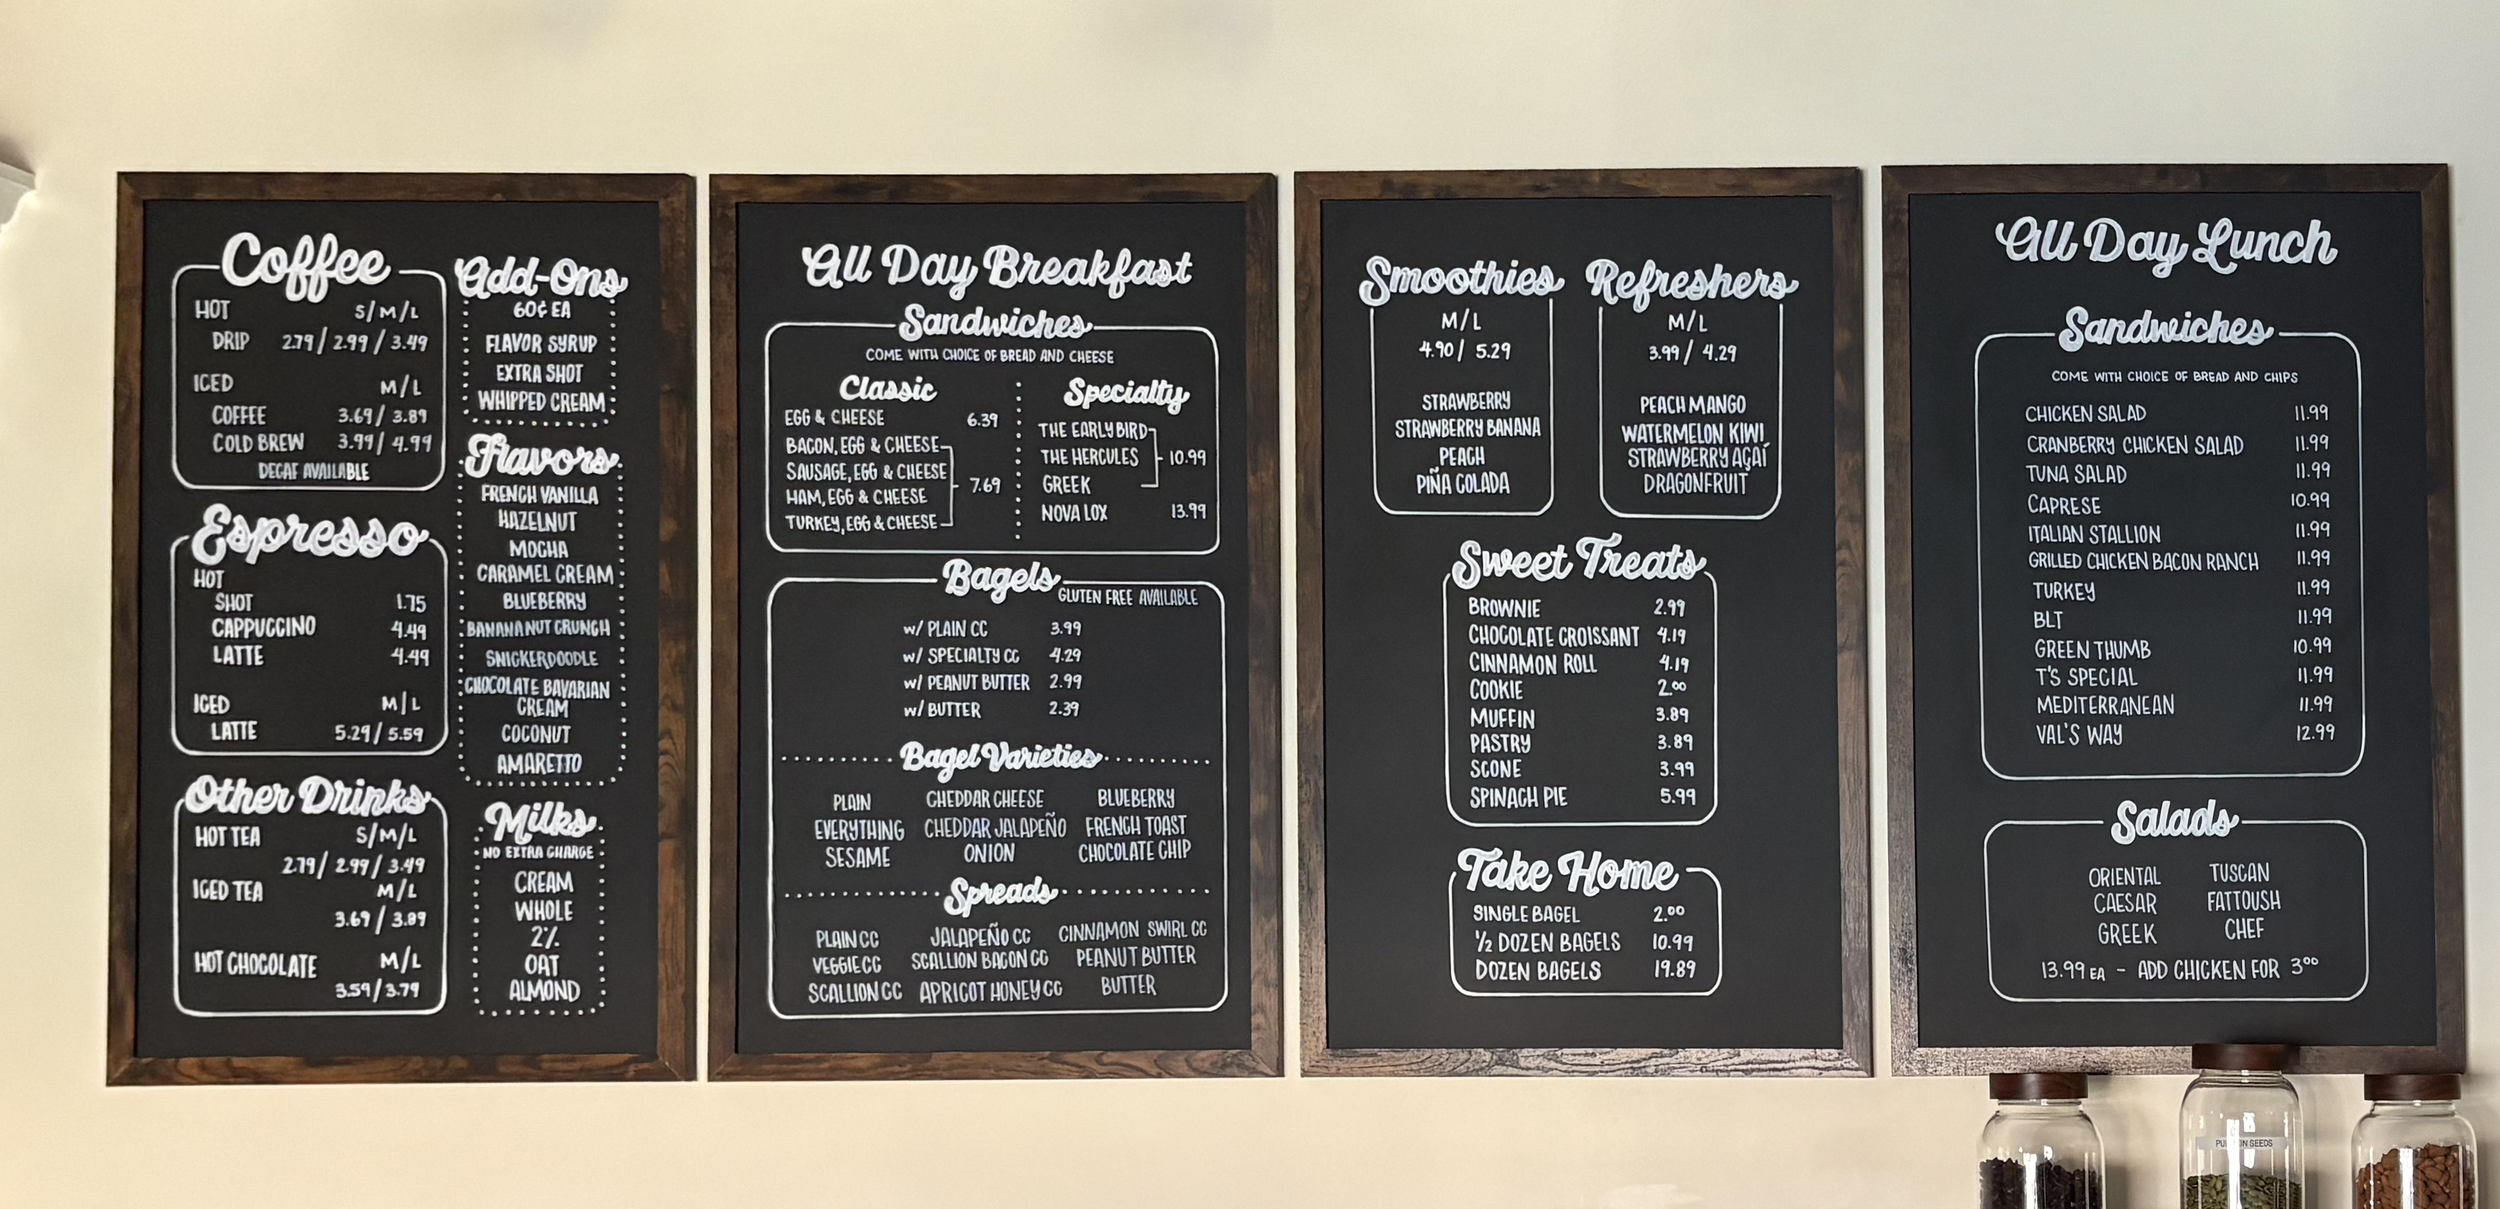 Coffee
HOT S/M/L
DRIP 2.79/ 2.99/ 3.49
ICED M/L
COFFEE 3.69/ 3.89
COLD BREW 3.99/ 4.99
DECAF AVAILABLE
Espresso
HOT
SHOT 1.75
CAPPUCCINO 4.49
LATTE 4.49
ICED M/L
LATTE 5.29/ 5.59
Other Drinks
HOT TEA S/M/L
2.79/ 2.99/ 3.49
ICED TEA M/L
3.69/ 3.89
HOT CHOCOLATE M/L
3.59/ 3.79
Add-Ons
60¢ EA
FLAVOR SYRUP
EXTRA SHOT
WHIPPED CREAM
Flavors
FRENCH VANILLA
HAZELNUT
MOCHA
CARAMEL CREAM
BLUEBERRY
BANANA NUT CRUNCH
SNICKERDOODLE
CHOCOLATE BAVARIAN
CREAM
COCONUT
AMARETTO
Milks
NO EXTRA CHARGE
CREAM
WHOLE
2%
OAT
ALMOND
All Day Breakfast
Sandwiches
COME WITH CHOICE OF BREAD AND CHEESE
Classic
EGG & CHEESE 6.39
BACON, EGG & CHEESE
SAUSAGE, EGG & CHEESE
HAM, EGG & CHEESE 7.69
TURKEY, EGG & CHEESE
Specialty
THE EARLY BIRD
THE HERCULES 10.99
GREEK
NOVA LOX 13.99
Bagels
GLUTEN FREE AVAILABLE
w/ PLAIN CC 3.99
w/ SPECIALTY CC 4.29
w/ PEANUT BUTTER 2.99
w/ BUTTER 2.39
Bagel Varieties
PLAIN CHEDDAR CHEESE BLUEBERRY
EVERYTHING CHEDDAR JALAPEÑO FRENCH TOAST
SESAME ONION CHOCOLATE CHIP
Spreads
PLAIN CC JALAPEÑO CC CINNAMON SWIRL CC
VEGGIE CC SCALLION BACON CC PEANUT BUTTER
SCALLION CC APRICOT HONEY CC BUTTER
Smoothies
M/L
4.90/ 5.29
STRAWBERRY
STRAWBERRY BANANA
PEACH
PIÑA COLADA
Refreshers
M/L
3.99/ 4.29
PEACH MANGO
WATERMELON KIWI
STRAWBERRY AÇAÍ
DRAGONFRUIT
Sweet Treats
BROWNIE 2.99
CHOCOLATE CROISSANT 4.19
CINNAMON ROLL 4.19
COOKIE 2.00
MUFFIN 3.89
PASTRY 3.89
SCONE 3.99
SPINACH PIE 5.99
Take Home
SINGLE BAGEL 2.00
1/2 DOZEN BAGELS 10.99
DOZEN BAGELS 19.89
All Day Lunch
Sandwiches
COME WITH CHOICE OF BREAD AND CHIPS
CHICKEN SALAD 11.99
CRANBERRY CHICKEN SALAD 11.99
TUNA SALAD 11.99
CAPRESE 10.99
ITALIAN STALLION 11.99
GRILLED CHICKEN BACON RANCH 11.99
TURKEY 11.99
BLT 11.99
GREEN THUMB 10.99
T'S SPECIAL 11.99
MEDITERRANEAN 11.99
VAL'S WAY 12.99
Salads
ORIENTAL TUSCAN
CAESAR FATTOUSH
GREEK CHEF
13.99 EA - ADD CHICKEN FOR 3.00
SEEDS